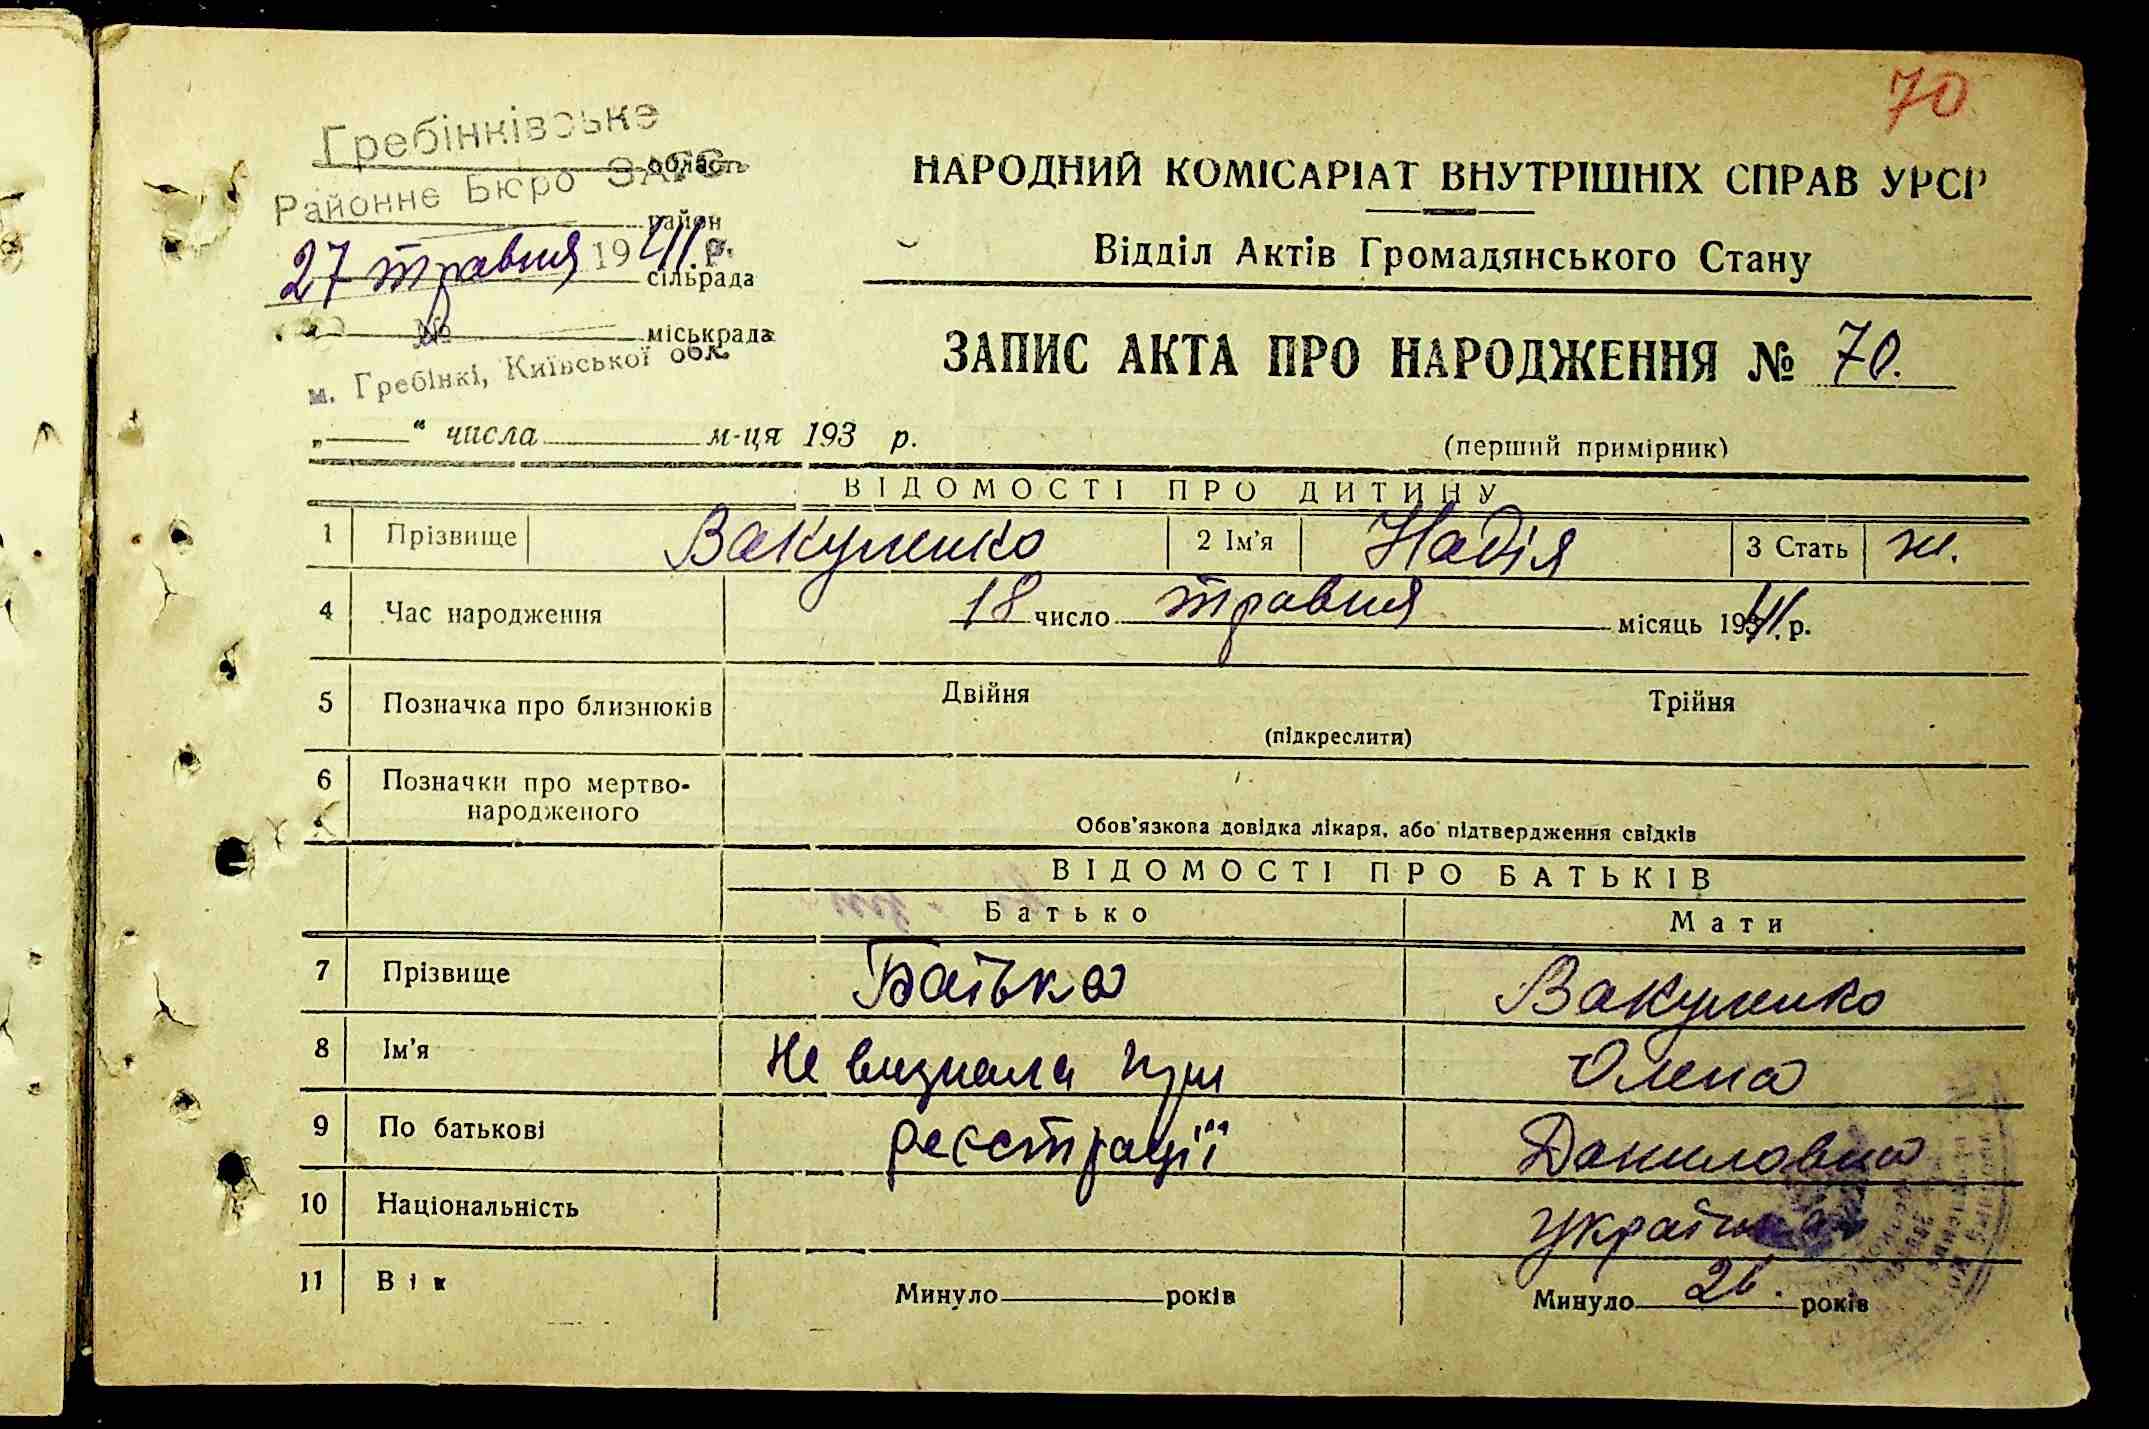 70
Гребінківське
область
Районне Бюро ЗАГС
район
27 травня 1941 р.
сільрада
№
міськрада
м. Гребінкі, Київської обл.
НАРОДНИЙ КОМІСАРІАТ ВНУТРІШНІХ СПРАВ УРСР
Відділ Актів Громадянського Стану
ЗАПИС АКТА ПРО НАРОДЖЕННЯ № 70.
„ “ числа м-ця 193 р.
(перший примірник)
ВІДОМОСТІ ПРО ДИТИНУ
1 Прізвище Вакуленко 2 Ім'я Надія 3 Стать ж.
4 Час народження 18 число травня місяць 1941. р.
5 Позначка про близнюків Двійня Трійня
(підкреслити)
6 Позначки про мертво-
народженого
Обов'язкова довідка лікаря, або підтвердження свідків
ВІДОМОСТІ ПРО БАТЬКІВ
Батько Мати
7 Прізвище Батька Вакуленко
8 Ім'я Не визнала при Олена
9 По батькові реєстрації Даниловна
10 Національність українка
11 Вік Минуло років Минуло 26. років